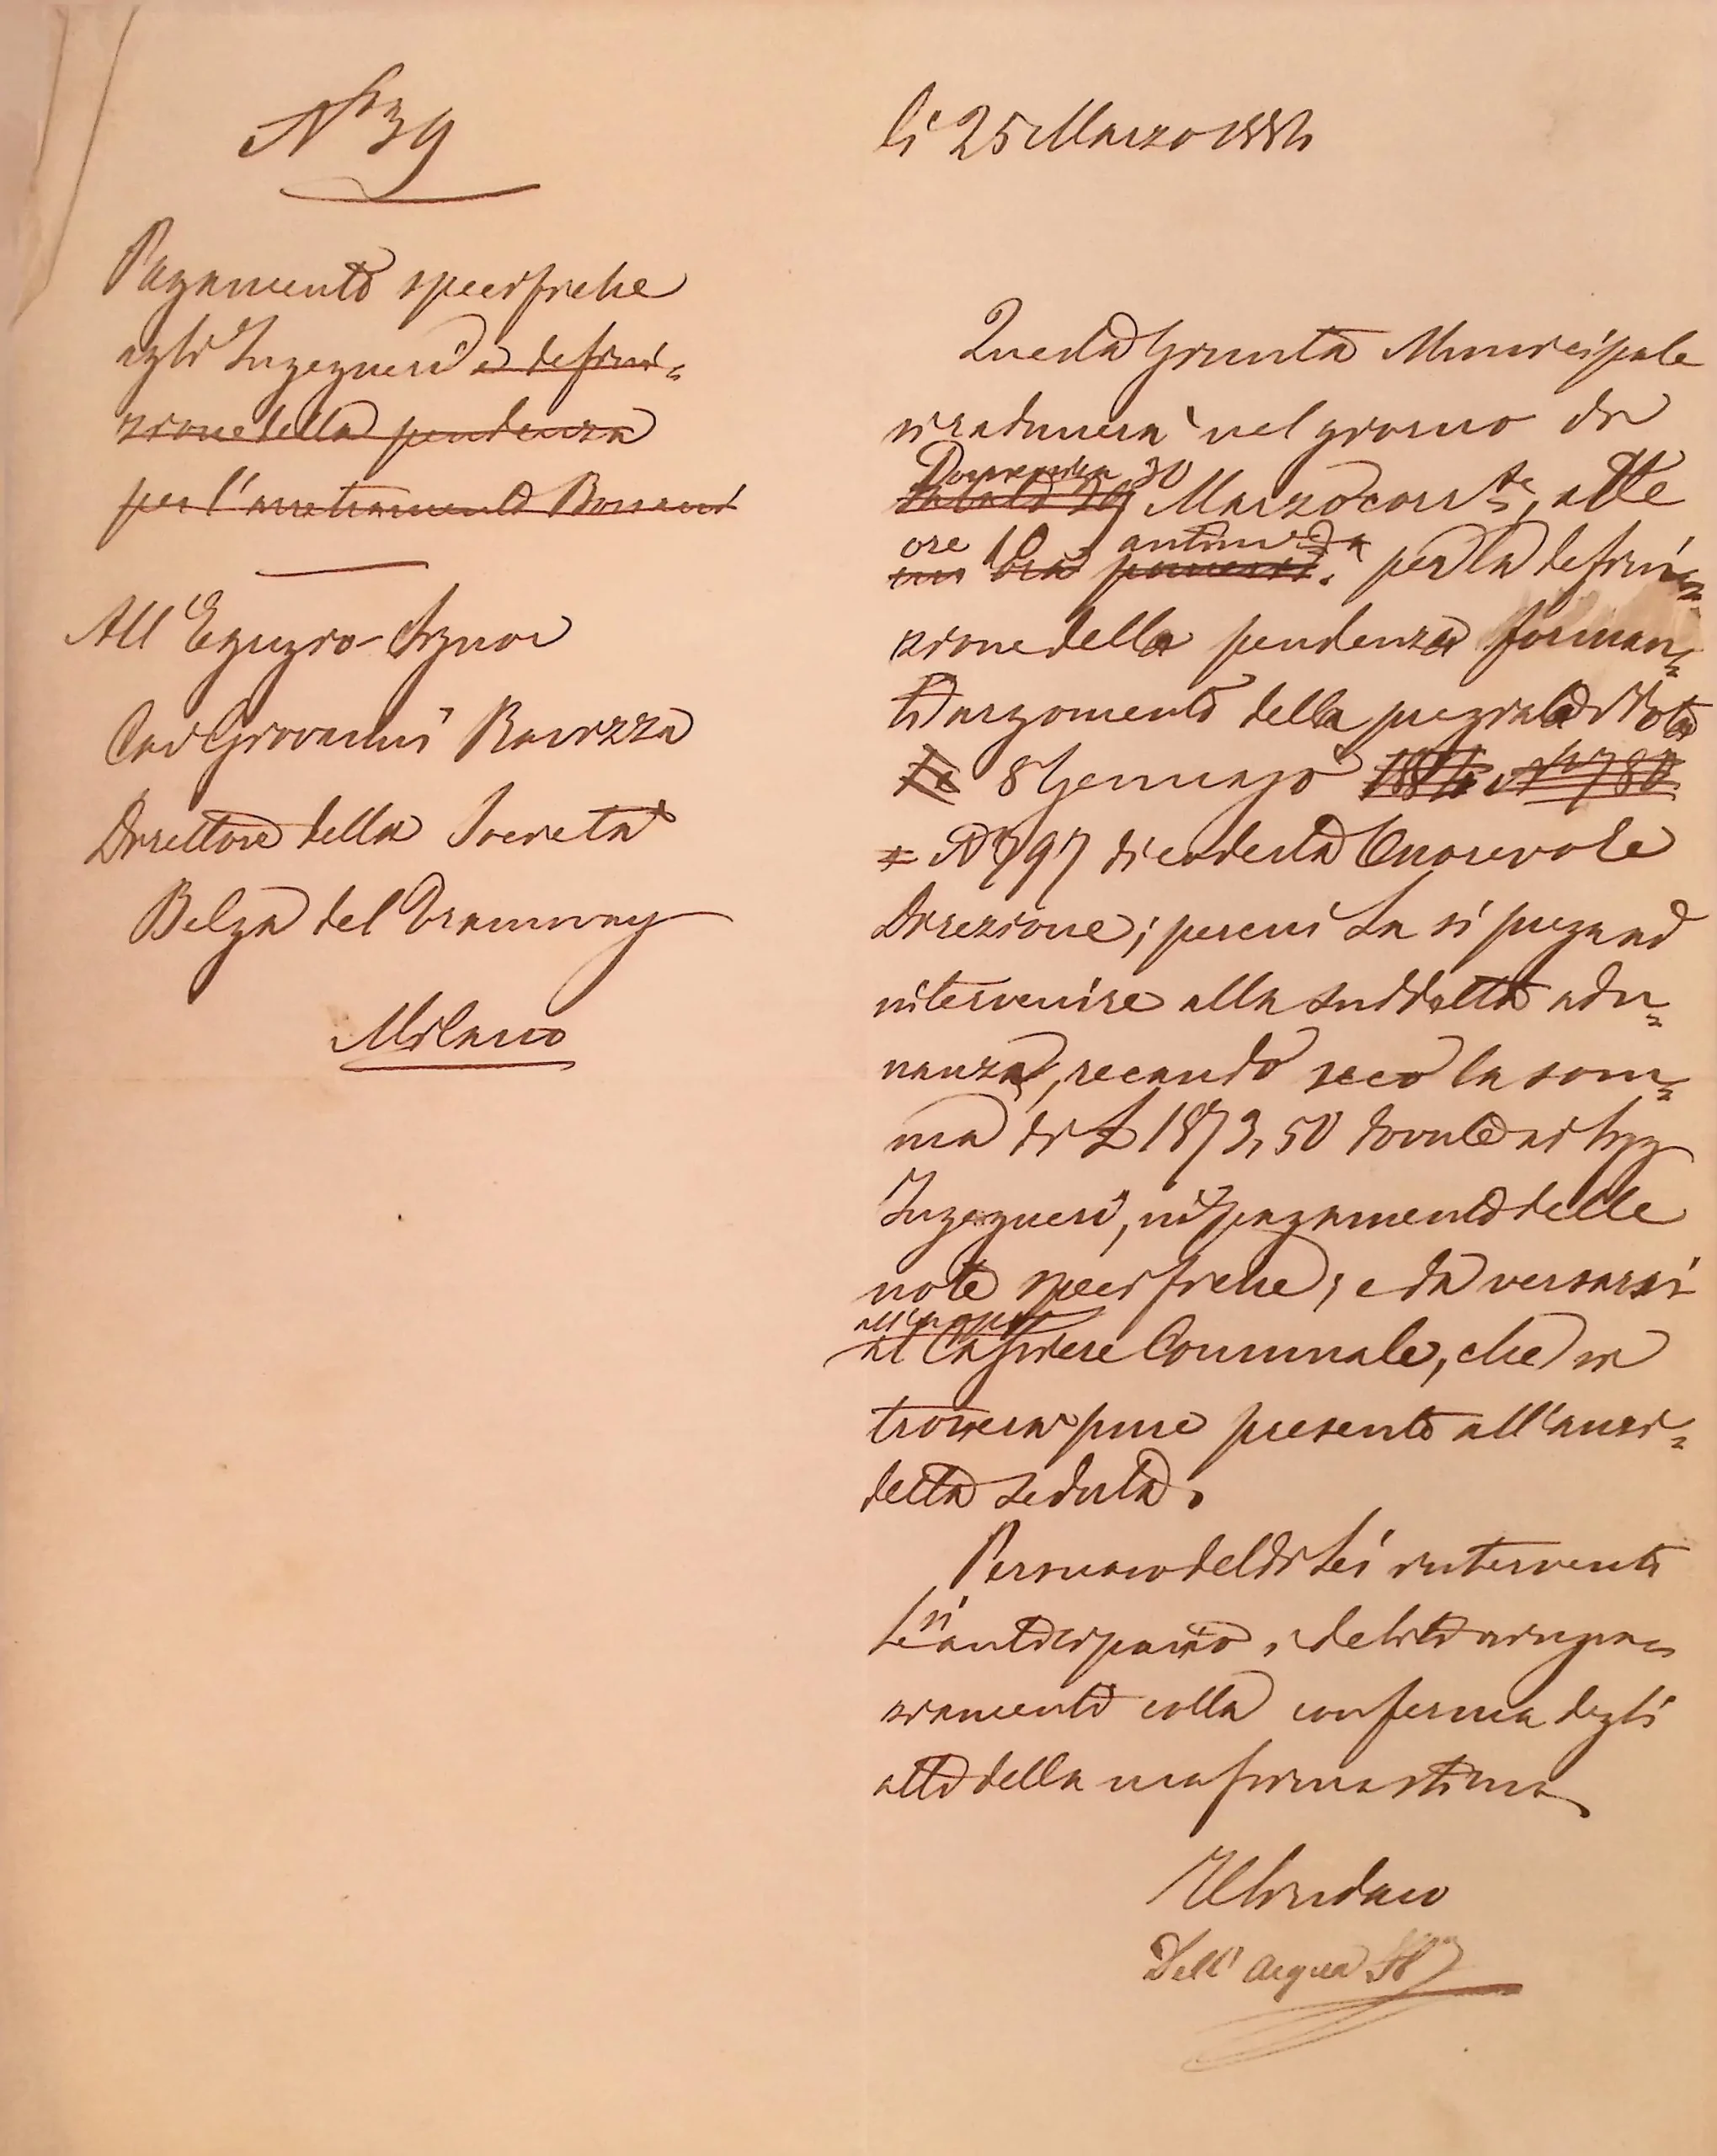 N° 39
Pagamento specifiche
agli Ingegneri e defini=
zione della pendenza
per l'arretramento Bossani
All'Egregio Signor
Cav Giovanni Ravizza
Direttore della Società
Belga del Tramway
Milano
li 25 Marzo 1884
Questa Giunta Municipale
si radunerà nel giorno di
Domenica 30
Sabato 29 Marzo corr.te, alle
ore 10 antimerid.
per la defini=
zione della pendenza forman=
te argomento della pregiata Nota
8 Gennajo 1884 N° 788
N° 797 di codesta Onorevole
Direzione; percui La si prega ad
intervenire alla suddetta adu=
nanza, recando seco la som=
ma di L 1873,50 dovute ai Sigg
Ingegneri, in pagamento delle
note specifiche; e da versarsi
al Cassiere Comunale, che si
troverà pure presente all'anzi=
detta seduta.
Persuaso del di Lei intervento
si
Le anticipano i debiti ringra=
ziamenti colla conferma degli
atti della massima stima
Il Sindaco
Dell'Acqua